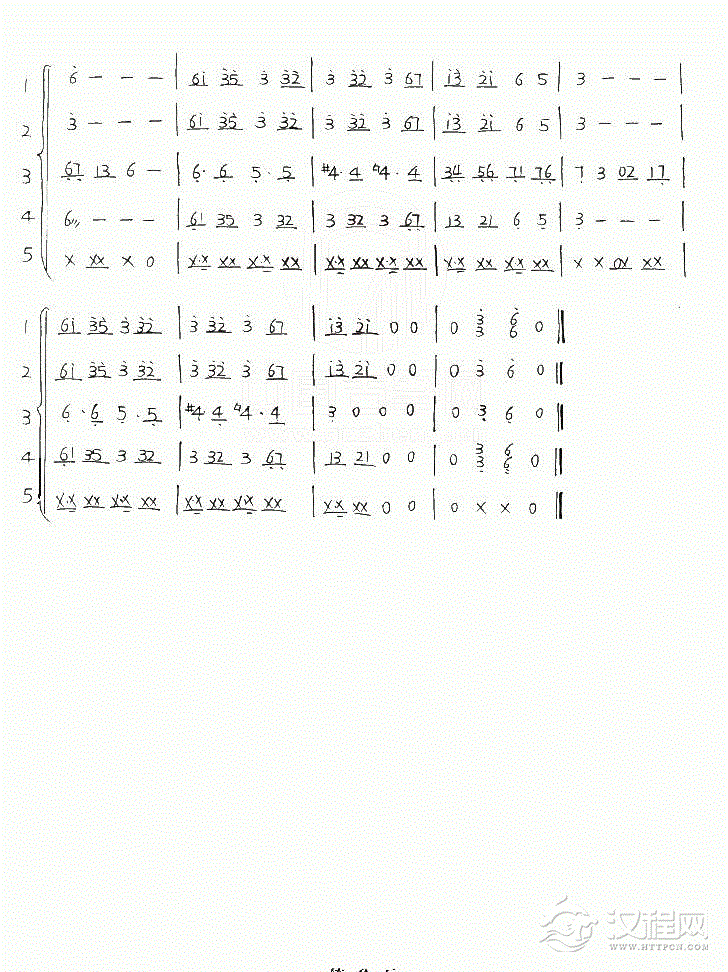 1 6 — — — | 61 35 3 32 | 3 32 3 67 | 13 21 6 5 | 3 — — — |
2 3 — — — | 61 35 3 32 | 3 32 3 67 | 13 21 6 5 | 3 — — — |
3 67 13 6 — | 6· 6 5· 5 | #4· 4 ♮4· 4 | 34 56 71 76 | 7 3 02 17 |
4 6 — — — | 61 35 3 32 | 3 32 3 67 | 13 21 6 5 | 3 — — — |
5 X XX X 0 | X·X XX X·X XX | X·X XX X·X XX | X·X XX X·X XX | X X 0X XX |
1 61 35 3 32 | 3 32 3 67 | 13 21 0 0 | 0 3/3 6/6 0 ‖
2 61 35 3 32 | 3 32 3 67 | 13 21 0 0 | 0 3 6 0 ‖
3 6· 6 5· 5 | #4 4 ♮4· 4 | 3 0 0 0 | 0 3 6 0 ‖
4 61 35 3 32 | 3 32 3 67 | 13 21 0 0 | 0 3/3 6/6 0 ‖
5 X·X XX X·X XX | X·X XX X·X XX | X·X XX 0 0 | 0 X X 0 ‖
汉程网
WWW.HTTPCN.COM